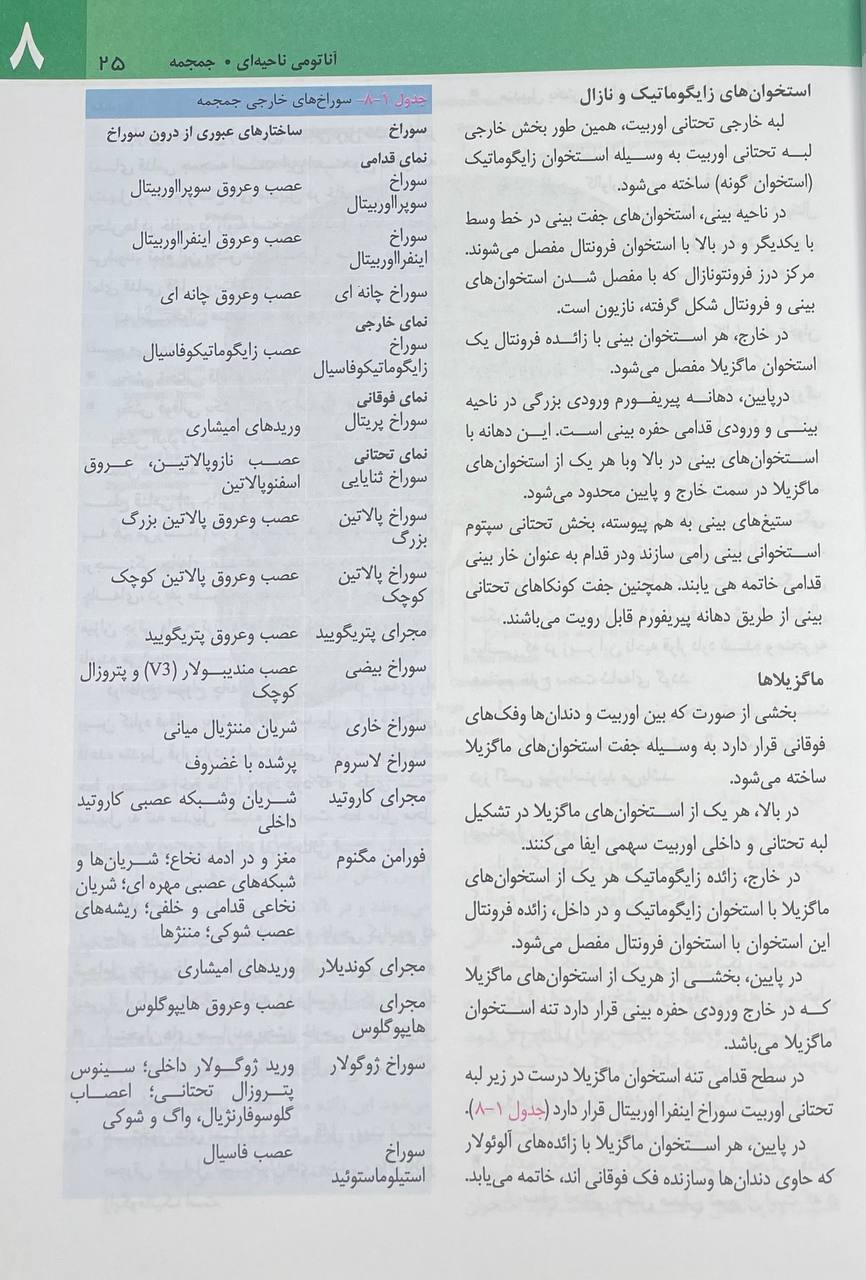 آناتومی ناحیه‌ای • جمجمه ۲۵
۸
استخوان‌های زایگوماتیک و نازال
لبه خارجی تحتانی اوربیت، همین طور بخش خارجی
لبه تحتانی اوربیت به وسیله استخوان زایگوماتیک
(استخوان گونه) ساخته می‌شود.
در ناحیه بینی، استخوان‌های جفت بینی در خط وسط
با یکدیگر و در بالا با استخوان فرونتال مفصل می‌شوند.
مرکز درز فرونتونازال که با مفصل شدن استخوان‌های
بینی و فرونتال شکل گرفته، نازیون است.
در خارج، هر استخوان بینی با زائده فرونتال یک
استخوان ماگزیلا مفصل می‌شود.
درپایین، دهانه پیریفورم ورودی بزرگی در ناحیه
بینی و ورودی قدامی حفره بینی است. این دهانه با
استخوان‌های بینی در بالا وبا هر یک از استخوان‌های
ماگزیلا در سمت خارج و پایین محدود می‌شود.
ستیغ‌های بینی به هم پیوسته، بخش تحتانی سپتوم
استخوانی بینی رامی سازند ودر قدام به عنوان خار بینی
قدامی خاتمه هی یابند. همچنین جفت کونکاهای تحتانی
بینی از طریق دهانه پیریفورم قابل رویت می‌باشند.
ماگزیلاها
بخشی از صورت که بین اوربیت و دندان‌ها وفک‌های
فوقانی قرار دارد به وسیله جفت استخوان‌های ماگزیلا
ساخته می‌شود.
در بالا، هر یک از استخوان‌های ماگزیلا در تشکیل
لبه تحتانی و داخلی اوربیت سهمی ایفا می‌کنند.
در خارج، زائده زایگوماتیک هر یک از استخوان‌های
ماگزیلا با استخوان زایگوماتیک و در داخل، زائده فرونتال
این استخوان با استخوان فرونتال مفصل می‌شود.
در پایین، بخشی از هریک از استخوان‌های ماگزیلا
که در خارج ورودی حفره بینی قرار دارد تنه استخوان
ماگزیلا می‌باشد.
در سطح قدامی تنه استخوان ماگزیلا درست در زیر لبه
تحتانی اوربیت سوراخ اینفرا اوربیتال قرار دارد (جدول ۱–۸).
در پایین، هر استخوان ماگزیلا با زائده‌های آلوئولار
که حاوی دندان‌ها وسازنده فک فوقانی اند، خاتمه می‌یابد.
جدول ۱–۸– سوراخ‌های خارجی جمجمه
سوراخ ساختارهای عبوری از درون سوراخ
نمای قدامی
سوراخ عصب وعروق سوپرااوربیتال
سوپرااوربیتال
سوراخ عصب وعروق اینفرااوربیتال
اینفرااوربیتال
سوراخ چانه ای عصب وعروق چانه ای
نمای خارجی
سوراخ عصب زایگوماتیکوفاسیال
زایگوماتیکوفاسیال
نمای فوقانی
سوراخ پریتال وریدهای امیشاری
نمای تحتانی
سوراخ ثنایایی عصب نازوپالاتین، عروق
اسفنوپالاتین
سوراخ پالاتین عصب وعروق پالاتین بزرگ
بزرگ
سوراخ پالاتین عصب وعروق پالاتین کوچک
کوچک
مجرای پتریگویید عصب وعروق پتریگویید
سوراخ بیضی عصب مندیبولار (V3) و پتروزال
کوچک
سوراخ خاری شریان مننژیال میانی
سوراخ لاسروم پرشده با غضروف
مجرای کاروتید شریان وشبکه عصبی کاروتید
داخلی
فورامن مگنوم مغز و در ادمه نخاع؛ شریان‌ها و
شبکه‌های عصبی مهره ای؛ شریان
نخاعی قدامی و خلفی؛ ریشه‌های
عصب شوکی؛ مننژها
مجرای کوندیلار وریدهای امیشاری
مجرای عصب وعروق هایپوگلوس
هایپوگلوس
سوراخ ژوگولار ورید ژوگولار داخلی؛ سینوس
پتروزال تحتانی؛ اعصاب
گلوسوفارنژیال، واگ و شوکی
سوراخ عصب فاسیال
استیلوماستوئید